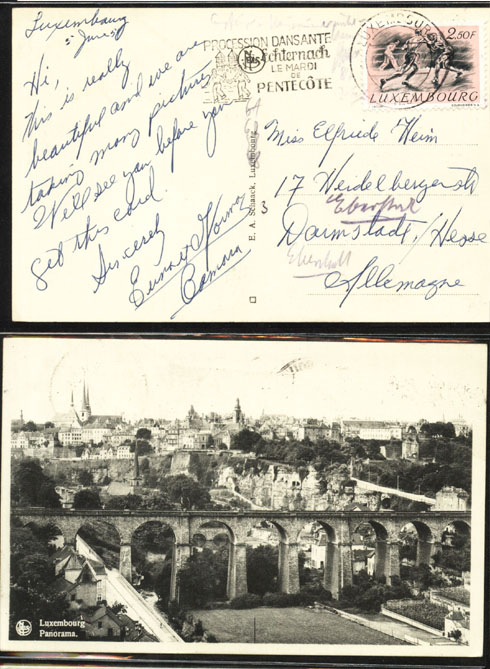 Luxembourg
June
Hi,
This is really
beautiful and we are
taking many pictures
We'll see you before you
get this card.
Sincerely
PROCESSION DANSANTE
Echternach
LE MARDI
DE
PENTECÔTE
LUXEMBOURG
2.50F
LUXEMBOURG
Miss Elfriede Heim
17 Heidelbergerstr
Darmstadt/Hesse
Allemagne
E. A. Schaack, Luxembourg
Luxembourg
Panorama.